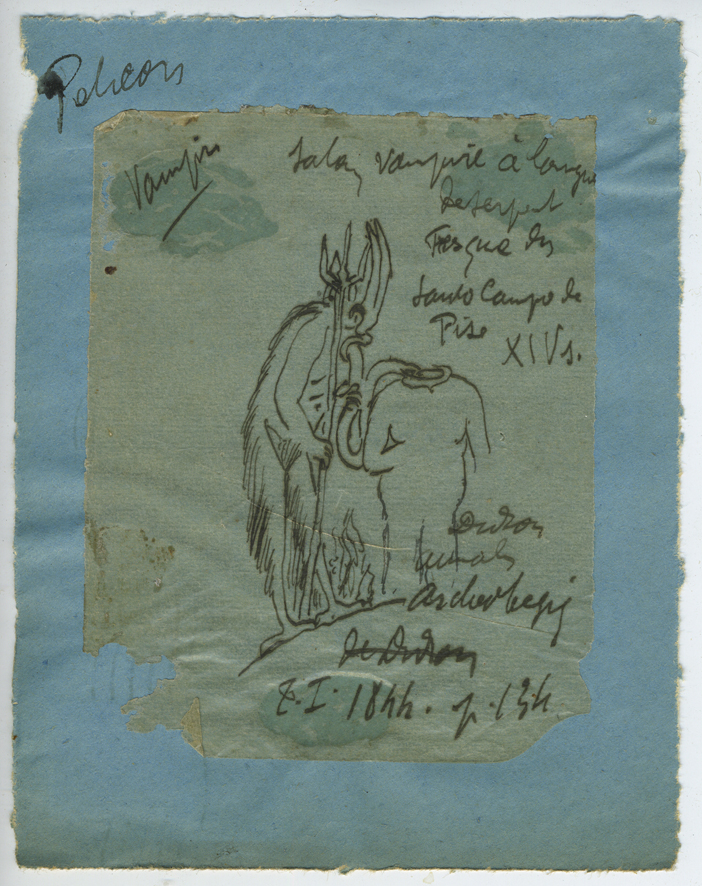 Pelicon
Vampire
Satan vampire à langue
de serpent
Fresque du
Santo Campo de
Pise
XIV s.
Didron
annals
archeologiq
de Didron
T. I. 1844. p. 134.